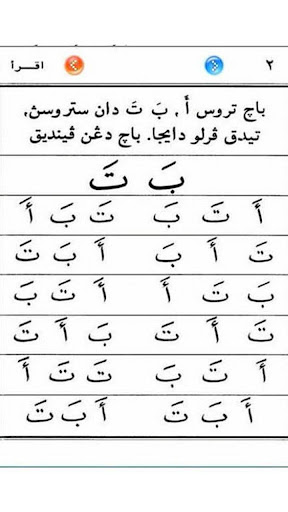 ٢ اقرأ
باچ تروس أَ , بَ تَ دان ستروسڽ,
تيدق ڤرلو دايجا. باچ دڠن ڤينديق
بَ تَ
أَ تَ بَ تَ بَ أَ
تَ أَ بَ أَ بَ تَ
بَ تَ أَ أَ تَ بَ
تَ أَ تَ بَ أَ تَ
أَ تَ بَ تَ تَ أَ
أَ بَ تَ أَ بَ تَ